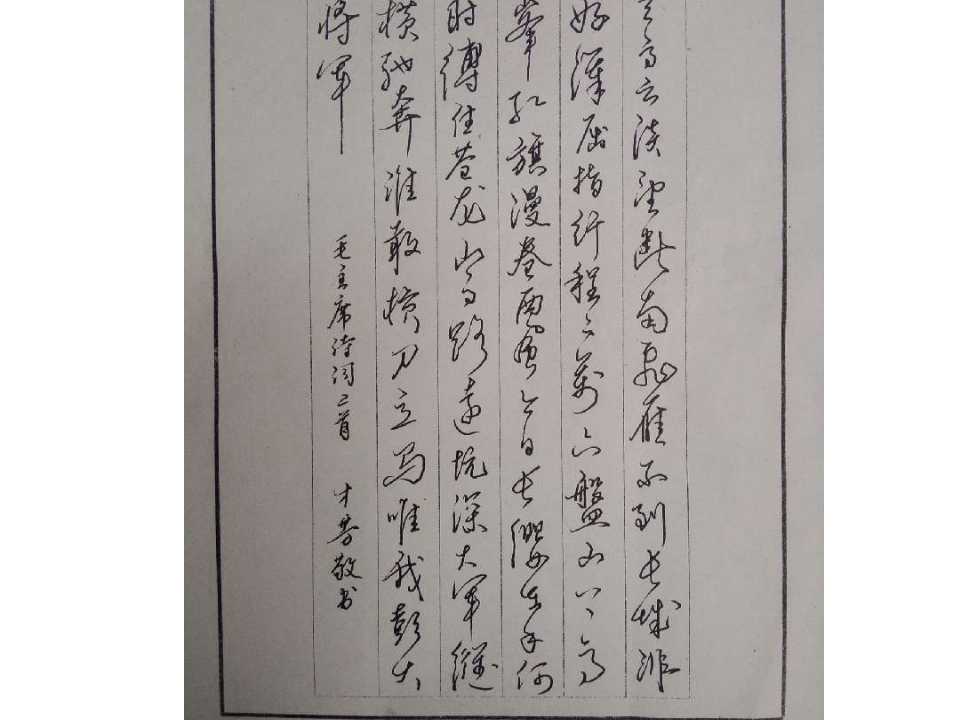 天高云淡望断南飛雁不到长城非
好漢屈指行程二萬六盤山上高
峯红旗漫卷西風今日长缨在手何
时缚住苍龙山高路遠坑深大军縱
横驰奔谁敢横刀立马唯我彭大
将军
毛主席诗词二首 才芳敬书